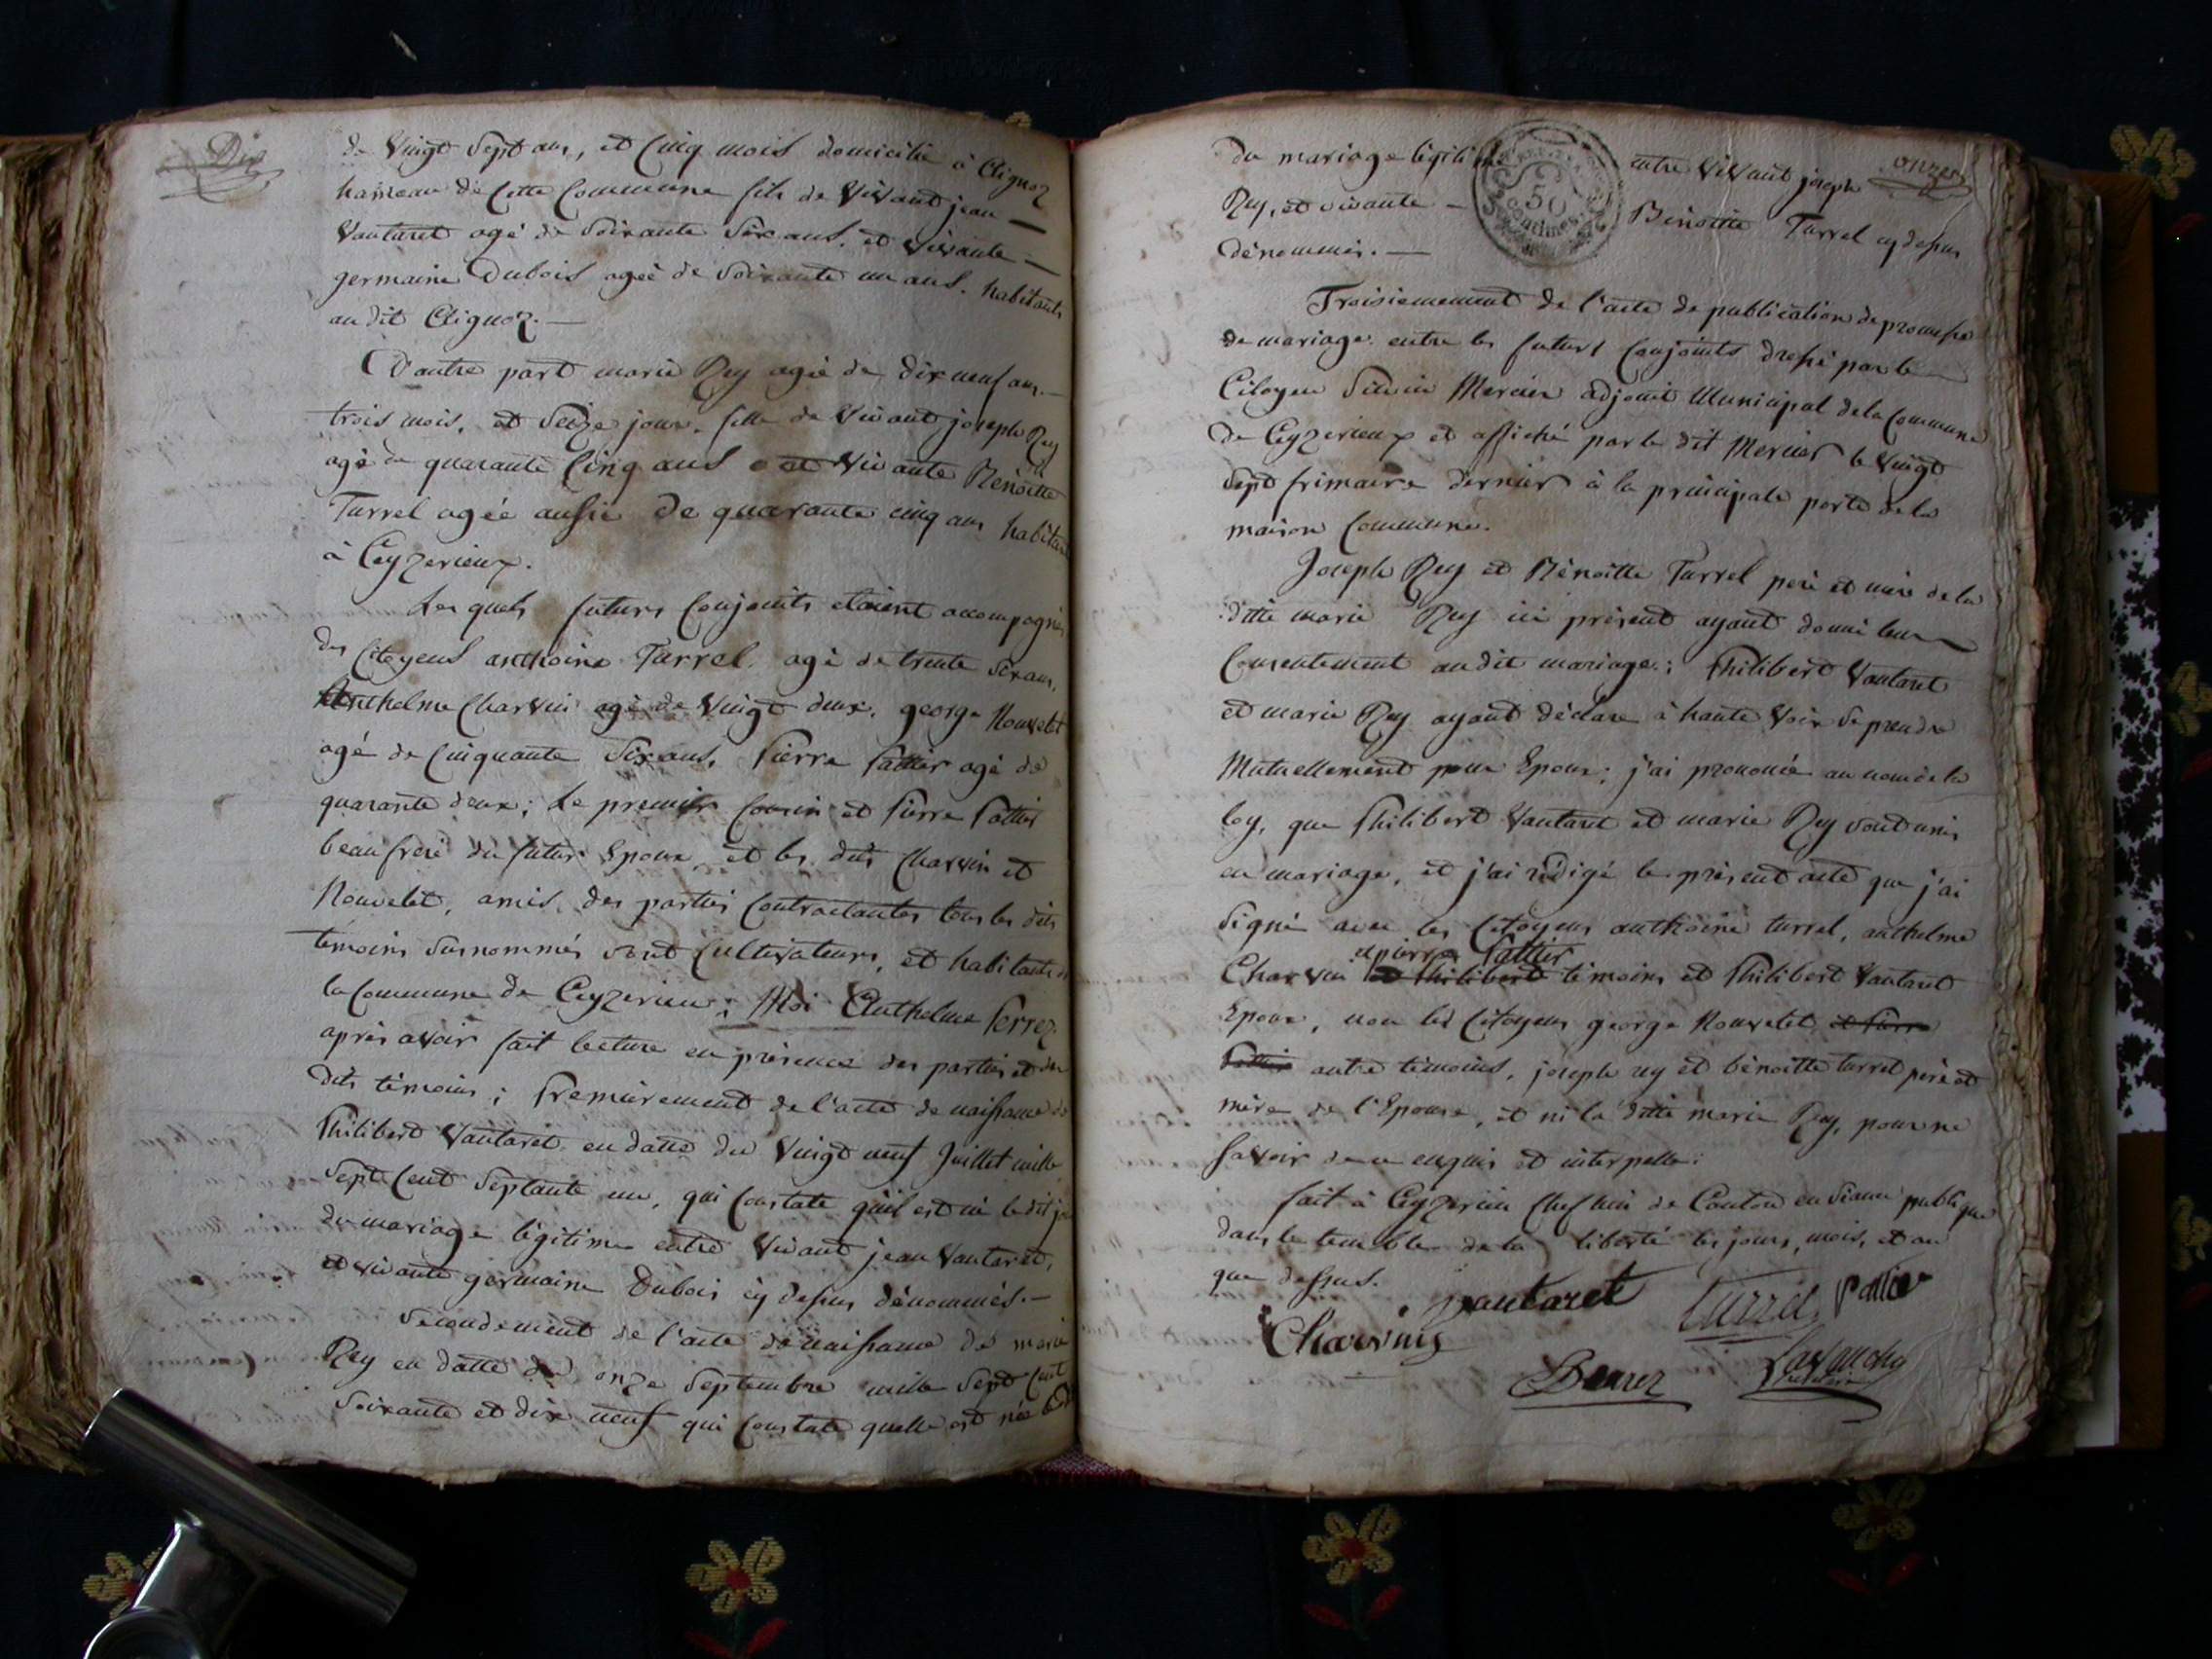 Dix
de Vingt Sept ans, et Cinq mois domicilié à Aignoz
hameau de Cette Commune fils de Vivant jean
Vautaret agé de Soixante Six ans, et Vivante
germaine Dubois ageé de Soixante un ans. habitants
au dit Aignoz.
D'autre part marie Rey ageé de dix neuf ans.
trois mois, et Seize jour. fille de Vivant joseph Rey
agé de quarante Cinq ans et Vivante Bénoitte
Turrel agée aussi de quarante cinq ans habitants
à Ceyzerieux.
Les quels futurs Conjoints etoient accompagnés
des Citoyens anthoine Turrel. agé de trente six ans,
Anthelme Charvin agé de Vingt deux. george Nouvelet
agé de Cinquante Six ans, Pierre Pattier agé de
quarante deux; Le premier Cousin et Pierre Pattier
beaufrere du futur Epoux, et les dits Charvin et
Nouvelet, amis, des parties Contractantes tous les dits
témoins Surnommés sont Cultivateurs, et habitants de
la Commune de Ceyzerieu; Moi Anthelme Perrez
après avoir fait lecture en présence des parties et des
dits témoins; Premierement de l'acte de naissance de
Philibert Vautaret en datte du Vingt neuf Juillet mille
Sept Cent Septante un, qui Constate qu'il est né le dit jour
du mariage légitime entre Vivant jean Vautaret,
et vivante germaine Dubois cy dessus dénommés.
Secondement de l'acte de naissance de marie
Rey en datte du onze Septembre mille Sept Cent
Soixante et dix neuf qui Constate quelle est née le dit
onze
du mariage légitime entre Vivant joseph
Rey, et vivante Bénoitte Turrel cy dessus
dénommés.
Troisiemement de l'acte de publication de promesse
de mariage entre les futurs Conjoints dressé par le
Citoyen Mercier adjoint Municipal de la Commune
de Ceyzerieux et affiché par le dit Mercier le Vingt
Sept frimaire dernier à la principale porte de la
maison Commune.
Joseph Rey et Bénoitte Turrel peré et mère de la
ditte marie Rey ici présent ayant donné leur
Consentement au dit mariage; Philibert Vautaret
et marie Rey ayant déclare à haute Voix Se prendre
Mutuellement pour Epoux; j'ai prononcé au nom de la
loy, que Philibert Vautaret et marie Rey sont unis
en mariage, et j'ai rédigé le présent acte que j'ai
Signé avec les Citoyens anthoine turrel, anthelme
et pierre Pattier
Charvin et Philibert témoins et Philibert Vautaret
Epoux, non les Citoyens george Nouvelet et Pierre
Pattier autre témoins, joseph rey et bénoitte turrel peré et
mère de l'Epouse, et ni la ditte marie Rey, pour ne
Savoir de ce enquis et interpellé:
fait à Ceyzerieu Chef lieu de Canton en Séance publique
dans le temple de la liberté les jours, mois, et an
que dessus.
Vautaret turrel Pattier
Charvin
Perrez Lavanchy